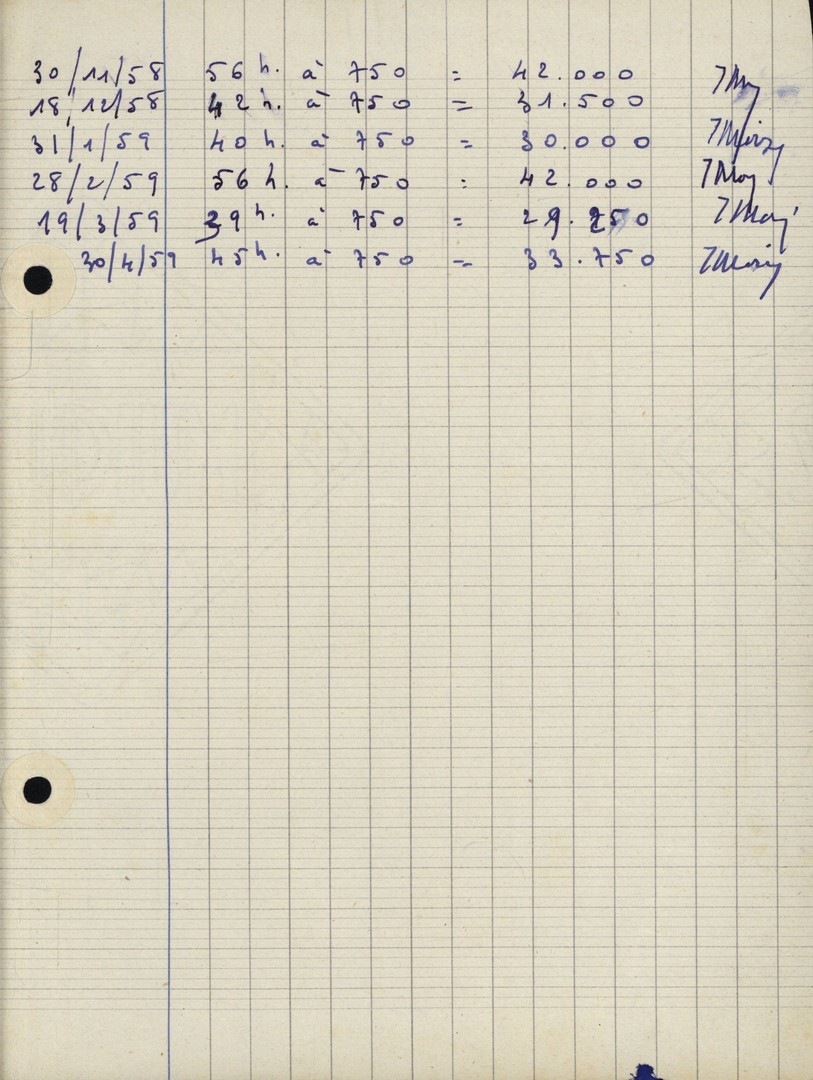 30/11/58 56 h. à 750 = 42.000
18/12/58 42 h. à 750 = 31.500
31/1/59 40 h. à 750 = 30.000
28/2/59 56 h. à 750 = 42.000
19/3/59 39 h. à 750 = 29.250
30/4/59 45 h. à 750 = 33.750